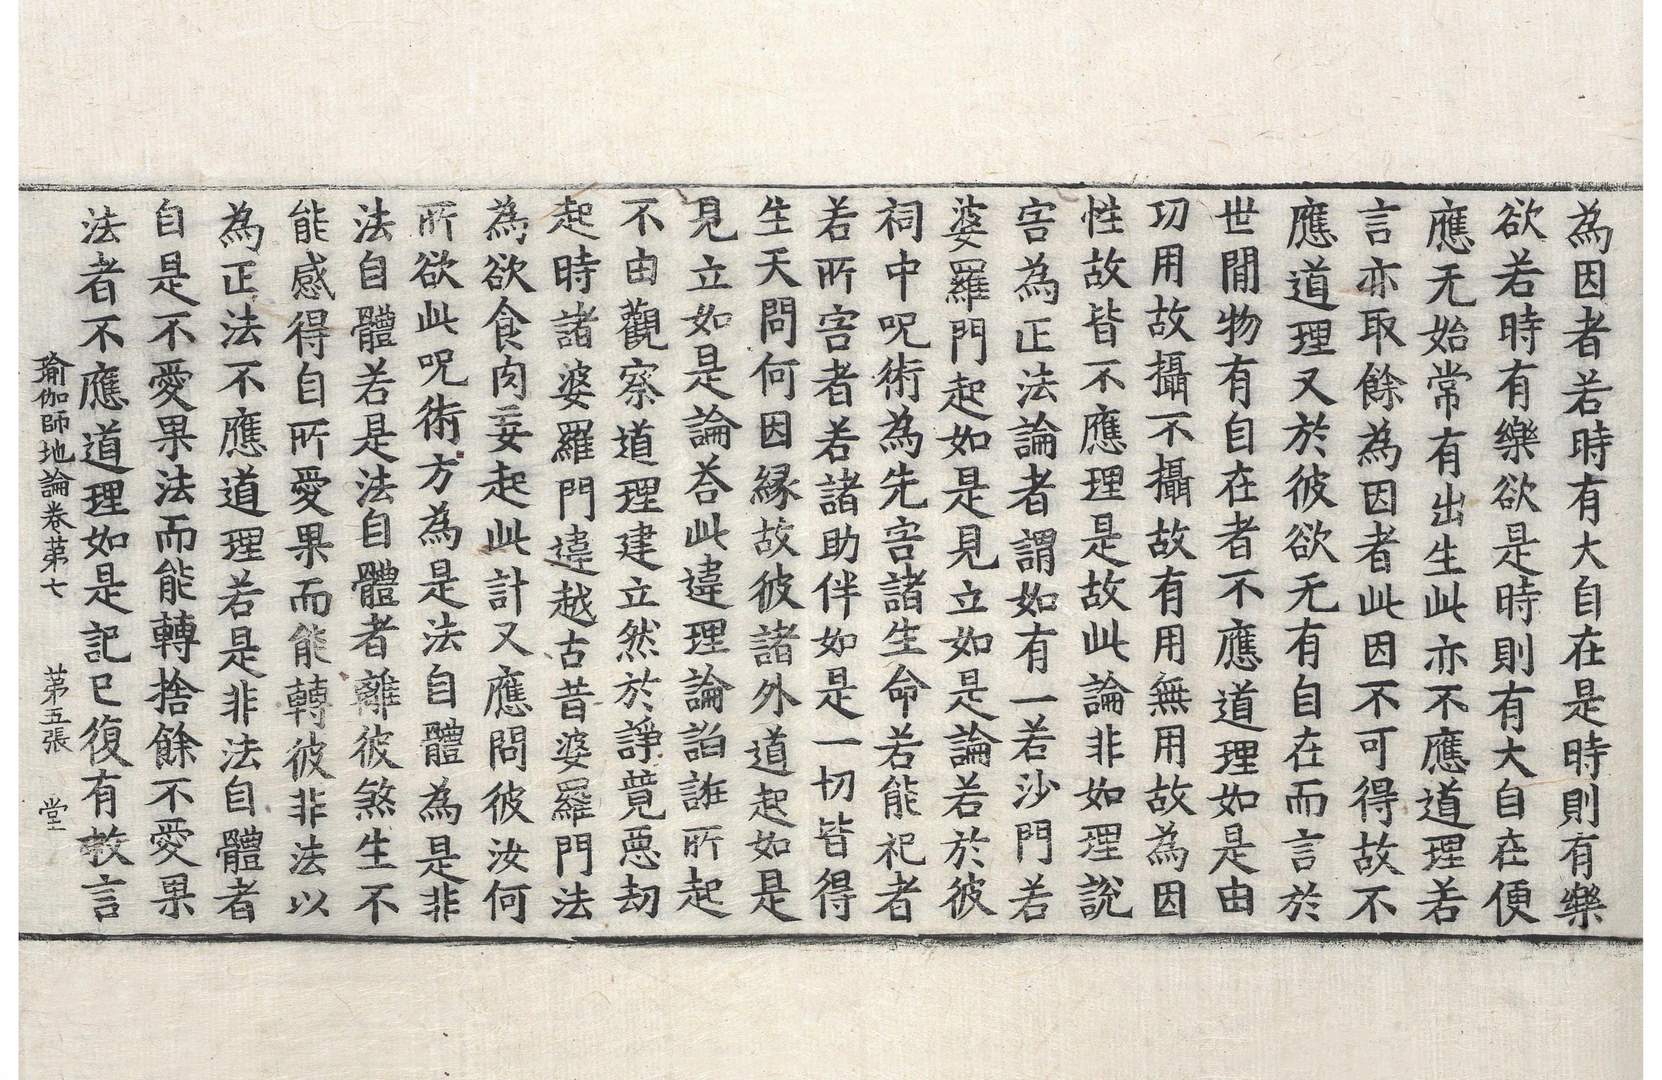 為因者若時有大自在是時則有樂
欲若時有樂欲是時則有大自在便
應无始常有出生此亦不應道理若
言亦取餘為因者此因不可得故不
應道理又於彼欲无有自在而言於
世間物有自在者不應道理如是由
功用故攝不攝故有用無用故為因
性故皆不應理是故此論非如理說
害為正法論者謂如有一若沙門若
婆羅門起如是見立如是論若於彼
祠中呪術為先害諸生命若能祀者
若所害者若諸助伴如是一切皆得
生天問何因緣故彼諸外道起如是
見立如是論荅此違理論諂誑所起
不由觀察道理建立然於諍競惡劫
起時諸婆羅門違越古昔婆羅門法
為欲食肉妄起此計又應問彼汝何
所欲此呪術方為是法自體為是非
法自體若是法自體者離彼煞生不
能感得自所愛果而能轉彼非法以
為正法不應道理若是非法自體者
自是不愛果法而能轉捨餘不愛果
法者不應道理如是記已復有救言
瑜伽師地論卷第七 第五張 堂